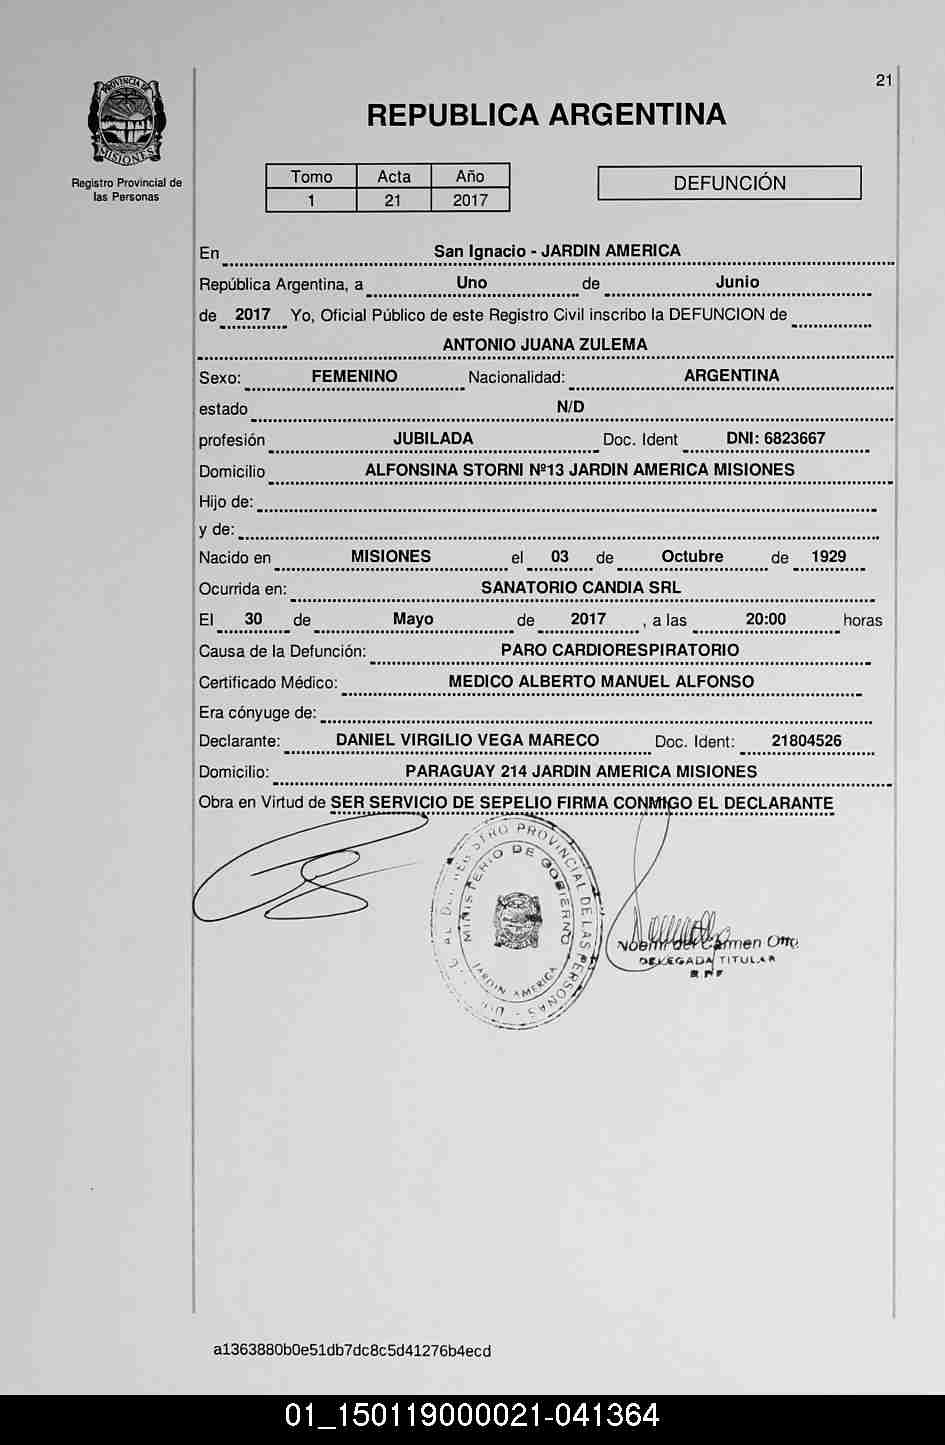 21
PROVINCIA DE
MISIONES
Registro Provincial de
las Personas
REPUBLICA ARGENTINA
Tomo Acta Año
1 21 2017
DEFUNCIÓN
En San Ignacio - JARDIN AMERICA
República Argentina, a Uno de Junio
de 2017 Yo, Oficial Público de este Registro Civil inscribo la DEFUNCION de
ANTONIO JUANA ZULEMA
Sexo: FEMENINO Nacionalidad: ARGENTINA
estado N/D
profesión JUBILADA Doc. Ident DNI: 6823667
Domicilio ALFONSINA STORNI Nº13 JARDIN AMERICA MISIONES
Hijo de:
y de:
Nacido en MISIONES el 03 de Octubre de 1929
Ocurrida en: SANATORIO CANDIA SRL
El 30 de Mayo de 2017 , a las 20:00 horas
Causa de la Defunción: PARO CARDIORESPIRATORIO
Certificado Médico: MEDICO ALBERTO MANUEL ALFONSO
Era cónyuge de:
Declarante: DANIEL VIRGILIO VEGA MARECO Doc. Ident: 21804526
Domicilio: PARAGUAY 214 JARDIN AMERICA MISIONES
Obra en Virtud de SER SERVICIO DE SEPELIO FIRMA CONMIGO EL DECLARANTE
PROVINCIAL DE LAS PERSONAS
MINISTERIO DE GOBIERNO
JARDIN AMERICA
Noemi del Carmen Otto
DELEGADA TITULAR
a1363880b0e51db7dc8c5d41276b4ecd
01_150119000021-041364